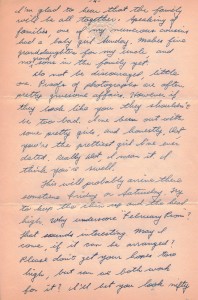 I'm glad to hear that the family
will be all together. Speaking of
families, one of my numerous cousins
had a baby girl Sunday, makes five
granddaughters for my uncle and
no grand sons in the family yet.
Do not be discouraged, little
one. Proofs of photographs are often
pretty gruesome affairs. However if
they look like you they shouldn't
be too bad. I've been out with
some pretty girls, and honestly, Pat
you're the prettiest girl I've ever
dated. Really Pat, I mean it I
think you're swell.
This will probably arrive there
sometime Friday or Saturday. Try
to keep the chin up and the
high. Why underscore February Prom?
That sounds interesting. May I
come, if it can be arranged?
Please don't get your hopes too
high, but can we both work
for it? I'll bet you look nifty